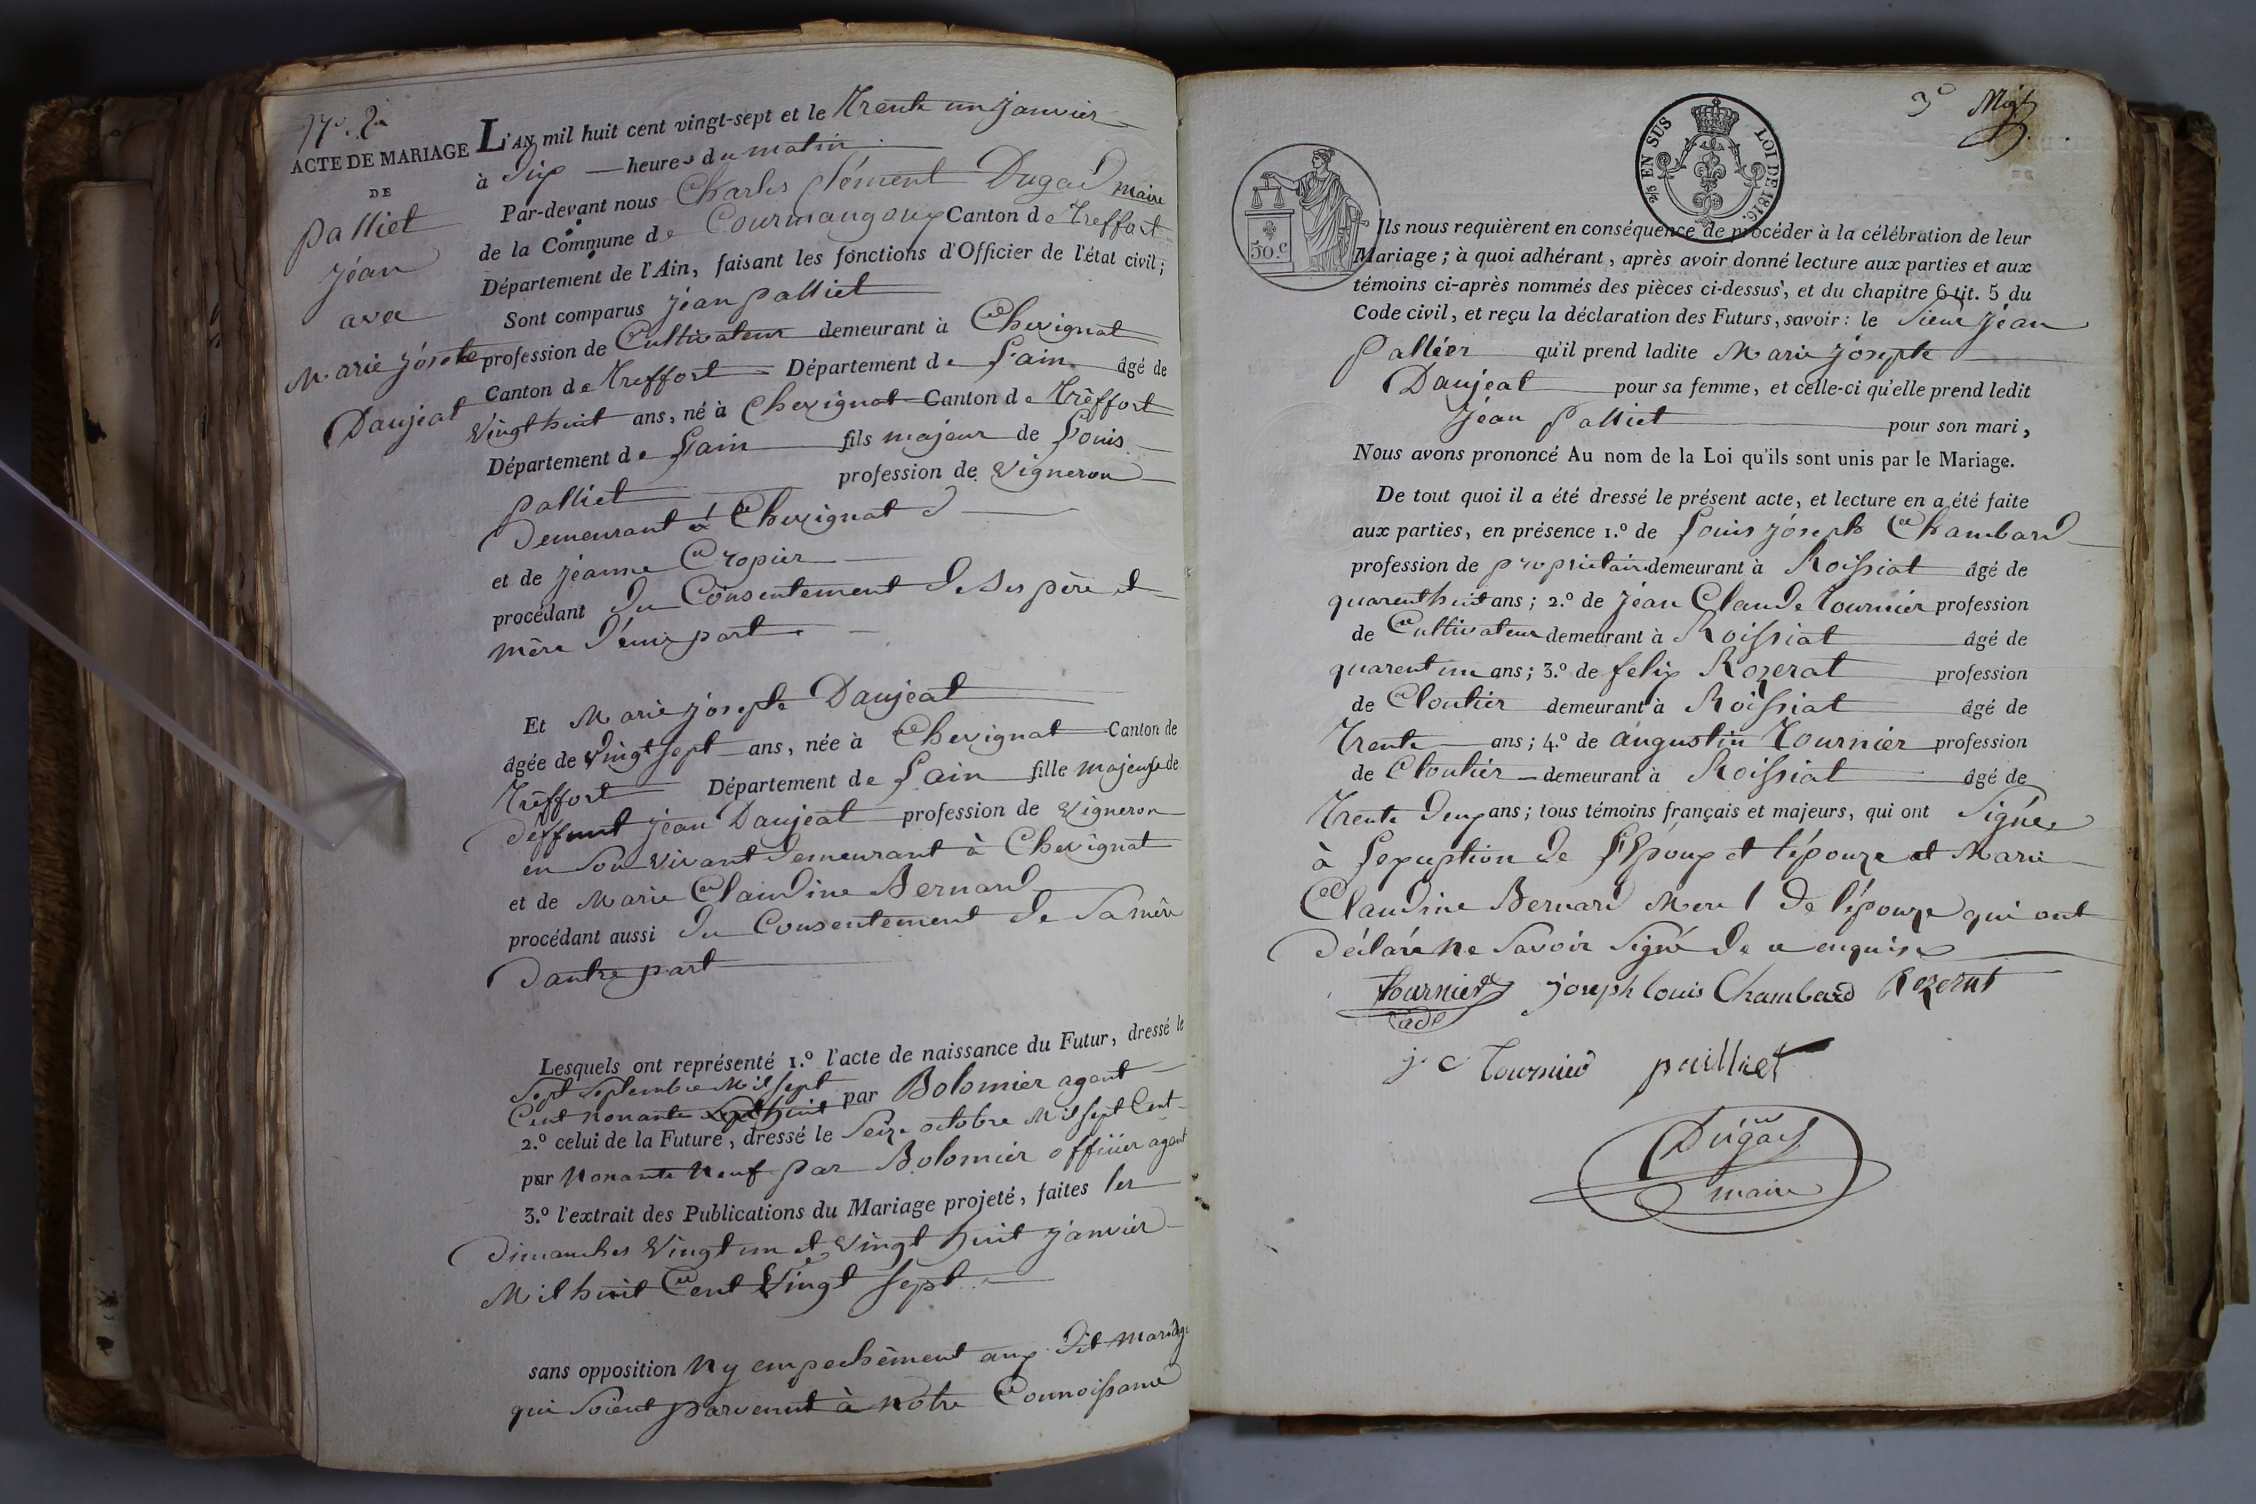 N.° 2
ACTE DE MARIAGE
DE
Palliet
jéan
avec
Marie jósephe
Daujeat
L'AN mil huit cent vingt-sept et le Trente un janvier
à Dix heures du matin
Par-devant nous Charles Clément Dugad maire
de la Commune de Courmangoux Canton de Treffort
Département de l'Ain, faisant les fonctions d'Officier de l'état civil;
Sont comparus jéan palliet
profession de Cultivateur demeurant à Chevignat
Canton de Treffort Département de Lain âgé de
Vingt huit ans, né à Chevignat Canton de Tréffort
Département de Lain fils majeur de Louis
palliet profession de Vigneron
Demeurant à Chevignat
et de jéanne Cropier
procédant du Consentement de ses père et
mère d'une part.
Et Marie josephe Daujeat
âgée de Vingt sept ans, née à Chevignat Canton de
Tréffort Département de Lain fille majeure de
déffunt jéan Daujeat profession de Vigneron
en son vivant demeurant à Chevignat
et de Marie Claudine Bernard
procédant aussi du Consentement de Sa mère
Dautre part
Lesquels ont représenté 1.° l'acte de naissance du Futur, dressé le
Sept Septembre Mil Sept
Cent nonante huit par Bolomier agent
2.° celui de la Future, dressé le Seize octobre Mil Sept Cent
par Nonante Neuf par Bolomier officier agent
3.° l'extrait des Publications du Mariage projeté, faites les
Dimanches Vingt un et Vingt huit janvier
Mil huit Cent Vingt Sept
sans opposition Ny empechêment aux dit mariage
qui Soient parvenut à Notre Connoissance
EN SUS
LOI DE 1816.
50.C
Ils nous requièrent en conséquence de procéder à la célébration de leur
Mariage; à quoi adhérant, après avoir donné lecture aux parties et aux
témoins ci-après nommés des pièces ci-dessus, et du chapitre 6 tit. 5 du
Code civil, et reçu la déclaration des Futurs, savoir: le Sieur Jéan
Palliér qu'il prend ladite Marie jósephe
Daujeat pour sa femme, et celle-ci qu'elle prend ledit
Jéan Palliet pour son mari,
Nous avons prononcé Au nom de la Loi qu'ils sont unis par le Mariage.
De tout quoi il a été dressé le présent acte, et lecture en a été faite
aux parties, en présence 1.° de Louis jóseph Chambard
profession de propriétaire demeurant à Roissiat âgé de
quarent huit ans; 2.° de jéan Claude Tournier profession
de Cultivateur demeurant à Roissiat âgé de
quarent un ans; 3.° de felix Rozerat profession
de Cloutier demeurant à Roissiat âgé de
Trente ans; 4.° de augustin Tournier profession
de Cloutier demeurant à Roissiat âgé de
Trente deux ans; tous témoins français et majeurs, qui ont Signés
à Lexuption de L'Epoux et l'épouze et Marie
Claudine Bernard Mere de l'épouze qui ont
déclaré ne Savoir Signé de ce enquise
tournier joseph louis Chambard Rozerat
cadet
j C Tournier pailliet
Dugad
maire